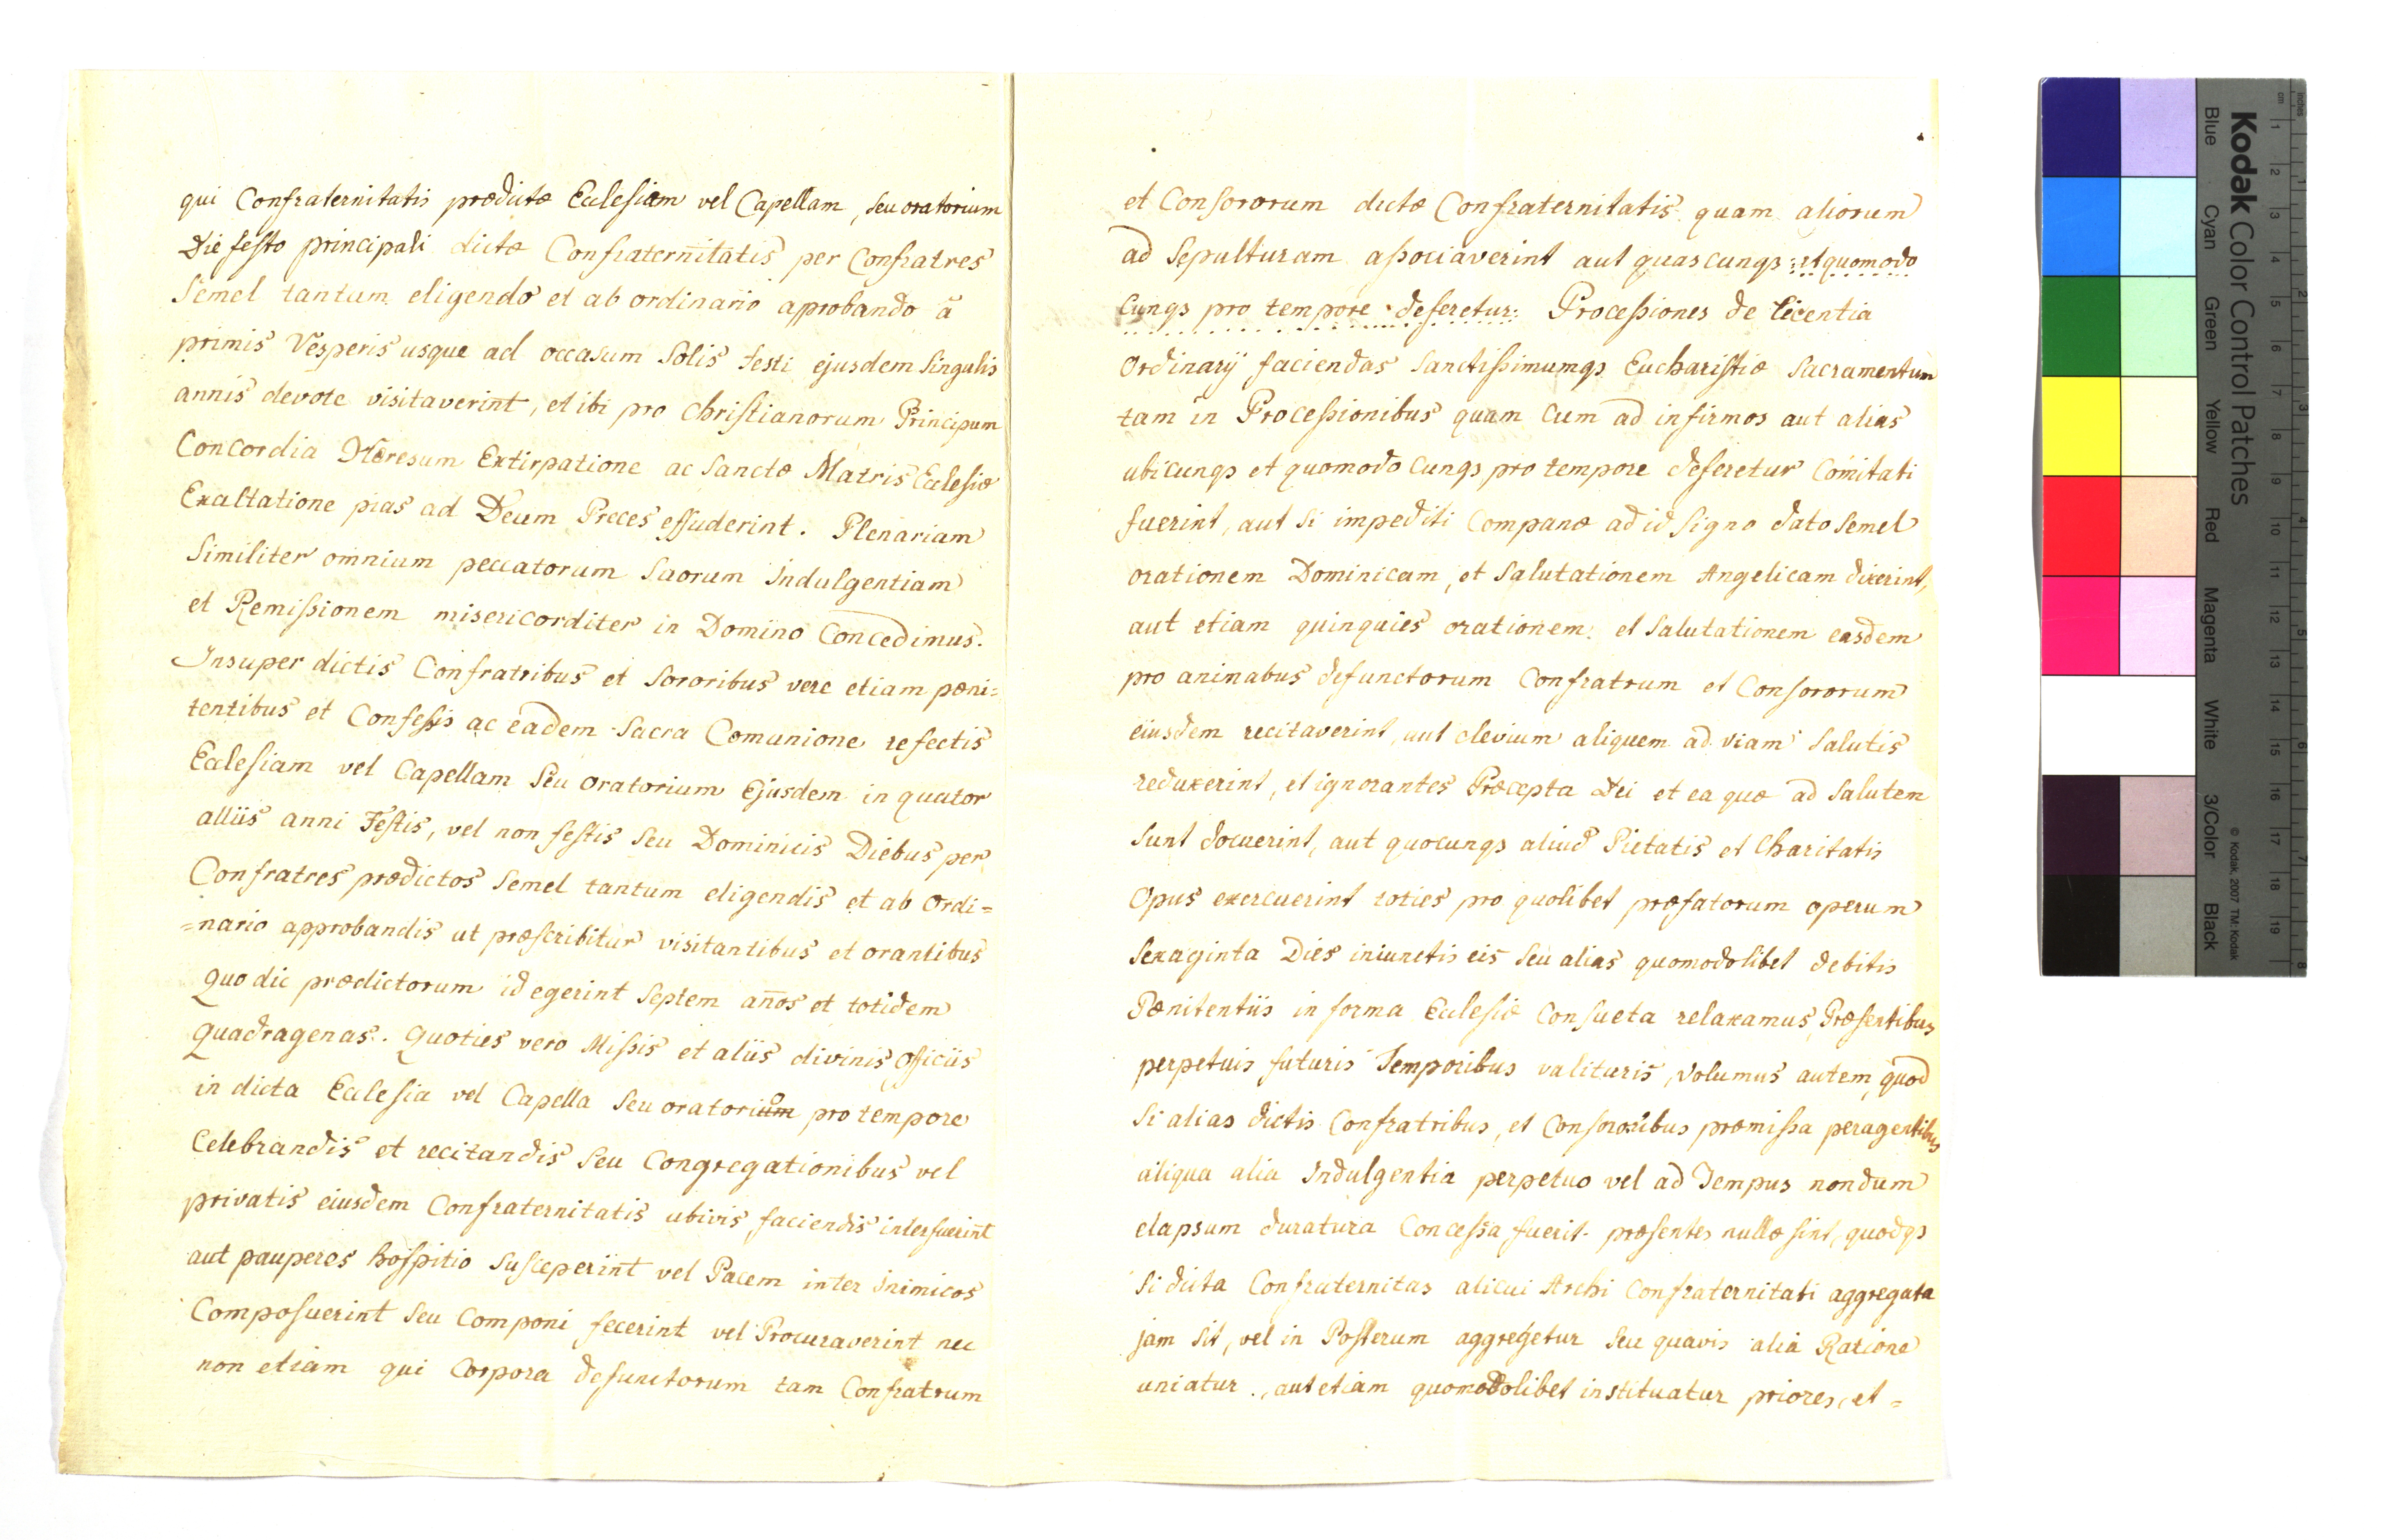 qui Confraternitatis prædictæ Ecclesiam vel Capellam, seu oratorium
Die festo principali dictæ Confraternitatis per Confratres
Semel tantum eligendo et ab ordinario aprobando â
primis Vesperis usque ad occasum Solis festi ejusdem Singulis
annis devote visitaverint, et ibi pro Christianorum Principum
Concordia Hæresum Extirpatione ac Sanctæ Matris Ecclesiæ
Exaltatione pias ad Deum Preces effuderint. Plenariam
Similiter omnium peccatorum Suorum Indulgentiam
et Remissionem misericorditer in Domino Concedimus.
Insuper dictis Confratribus et Sororibus vere etiam pæni=
tentibus et Confessis ac eadem Sacra Comunione refectis
Ecclesiam vel Capellam Seu Oratorium Ejusdem in quator
alliis anni Festis, vel non festis Seu Dominicis Diebus per
Confratres prædictos Semel tantum eligendis et ab Ordi=
=nario approbandis ut præscribitur visitantibus et orantibus
quo die prædictorum id egerint Septem anos et totidem
quadragenas. Quoties vero Missis et aliis divinis officiis
in dicta Ecclesia vel Capella Seu oratorium pro tempore
Celebrandis et recitandis Seu Congregationibus vel
privatis eiusdem Confraternitatis ubivis faciendis interfuerint
aut pauperes hospitio Susceperint vel Pacem inter Inimicos
Composuerint Seu Componi fecerint vel Procuraverint nec
non etiam qui Corpora defunctorum tam Confratrum
et Consororum dictæ Confraternitatis quam aliorum
ad Sepulturam associaverint aut quascunqs et quomodo
cunqs pro tempore deferetur: Processiones de licentia
Ordinarij faciendas Sanctissimumqs Eucharistiæ Sacramentum
tam in Processionibus quam Cum ad infirmos aut alias
ubicunqs et quomodo cunqs pro tempore deferetur Comitati
fuerint, aut Si impediti Companæ ad id Signo dato Semel
orationem Dominicam, et Salutationem Angelicam dixerint,
aut etiam quinquies orationem et Salutationem easdem
pro animabus defunctorum Confratrum et Consororum
eiusdem recitaverint, aut devium aliquem ad viam Salutis
reduxerint, et ignorantes Præcepta Dei et ea quæ ad Salutem
Sunt docuerint, aut quocunqs aliud Pietatis et Charitatis
Opus exercuerint toties pro quolibet præfatorum operum
Sexaginta Dies iniunctis eis Seu alias quomodolibet debitis
Pænitentiis in forma Ecclesiæ Consueta relaxamus, Præsentibus
perpetuis futuris Temporibus valituris, Volumus autem, quod
Si alias dictis Confratribus, et Consororibus præmissa peragentibus
aliqua alia Indulgentia perpetuo vel ad Tempus nondum
elapsum duratura Concessa fuerit præsentes nullæ sint, quodqs
Si dicta Confraternitas alicui Archi Confraternitati aggregata
jam Sit, vel in Posterum aggregetur Seu quavis alia Ratione
uniatur, aut etiam quomodolibet instituatur priores, et =
Kodak Color Control Patches
Blue Cyan Green Yellow Red Magenta White 3/Color Black
© Kodak, 2007 TM: Kodak
inches 1 2 3 4 5 6 7 8
cm 1 2 3 4 5 6 7 8 9 10 11 12 13 14 15 16 17 18 19